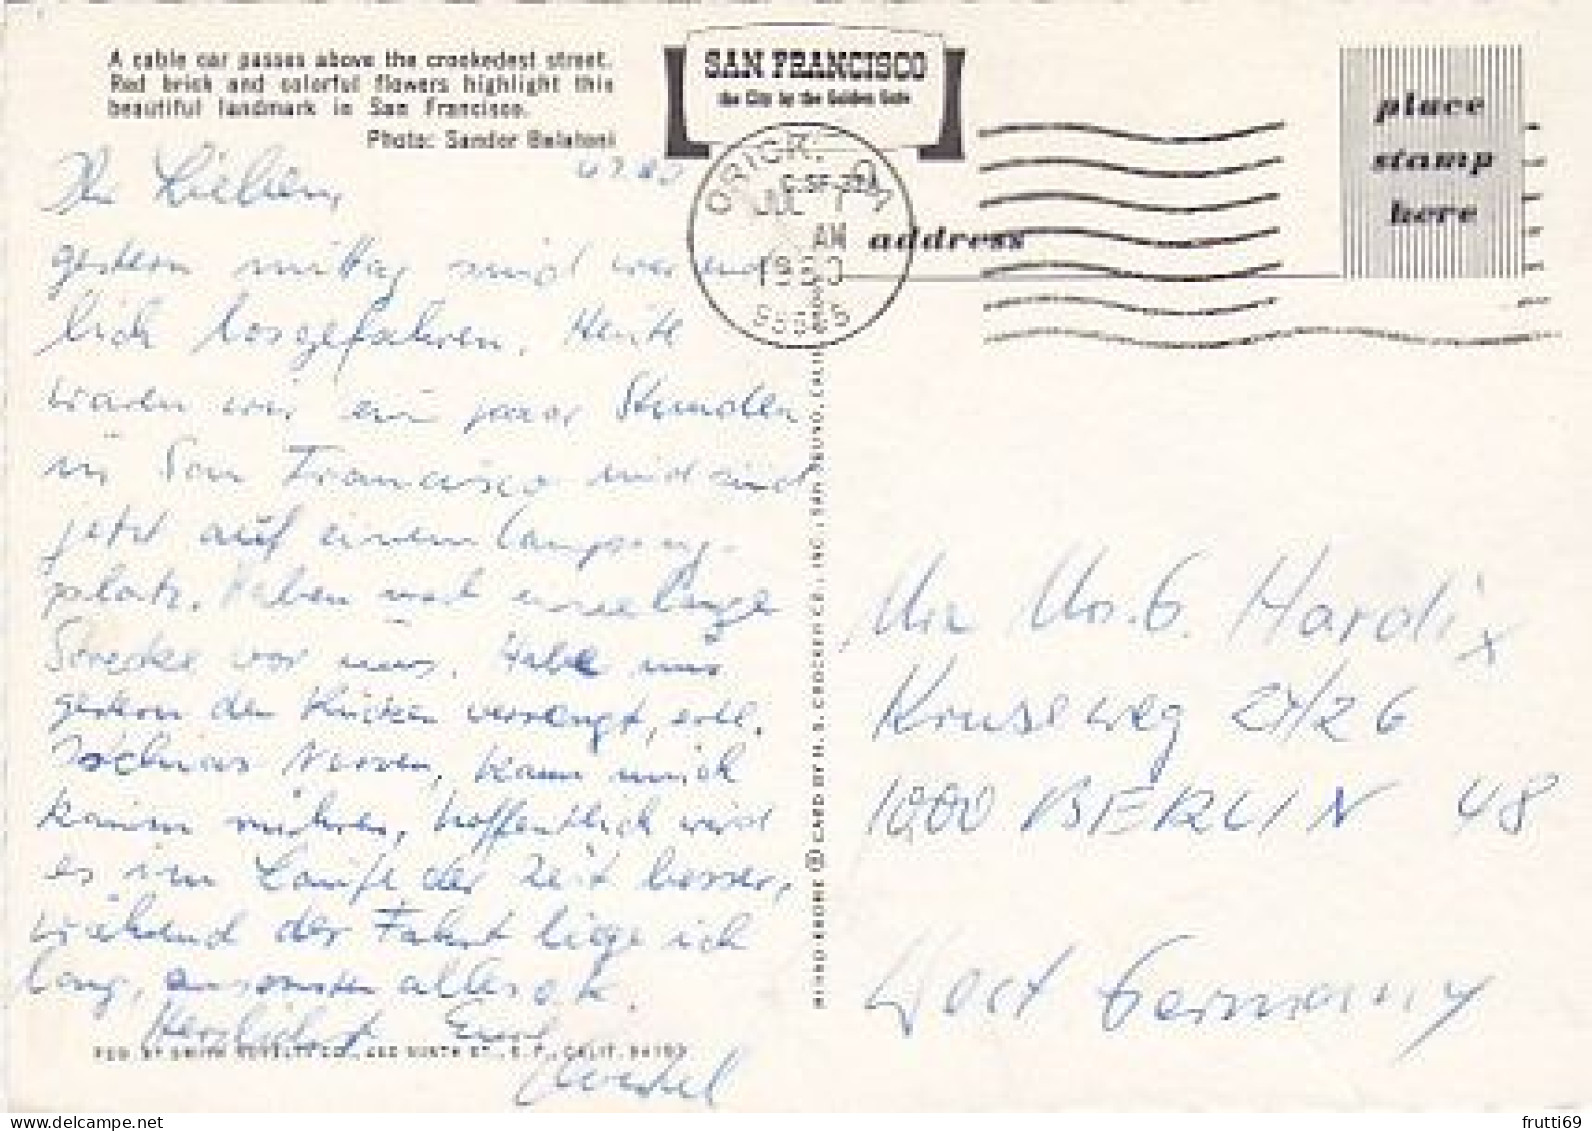 A cable car passes above the crookedest street.
Red brick and colorful flowers highlight this
beautiful landmark in San Francisco.
Photo: Sandor Balatoni
SAN FRANCISCO
the City by the Golden Gate
place
stamp
here
address
ORICK, CA
JUL 7
AM
1980
95555
Ihr Lieben,
gestern mittag sind wir end
lich losgefahren. Heute
waren wir ein paar Stunden
in San Francisco und sind
jetzt auf einem Camping-
platz. Haben noch eine lange
Strecke vor uns. Habe mir
gestern den Rücken verrengt, evtl.
Ischias Nerven, kann mich
kaum rühren, hoffentlich wird
es im Laufe der Zeit besser,
während der Fahrt liege ich
lang, ansonsten alles o.k.
Herzlichst Eure
MIRRO-KROME ® CARD BY H. S. CROCKER CO., INC., SAN BRUNO, CALIF.
PUB. BY SMITH NOVELTY CO., 460 NINTH ST., S. F., CALIF. 94103
Mrs. G. Hardix
Kruseweg 24/26
1000 BERLIN 48
West Germany
frutti69